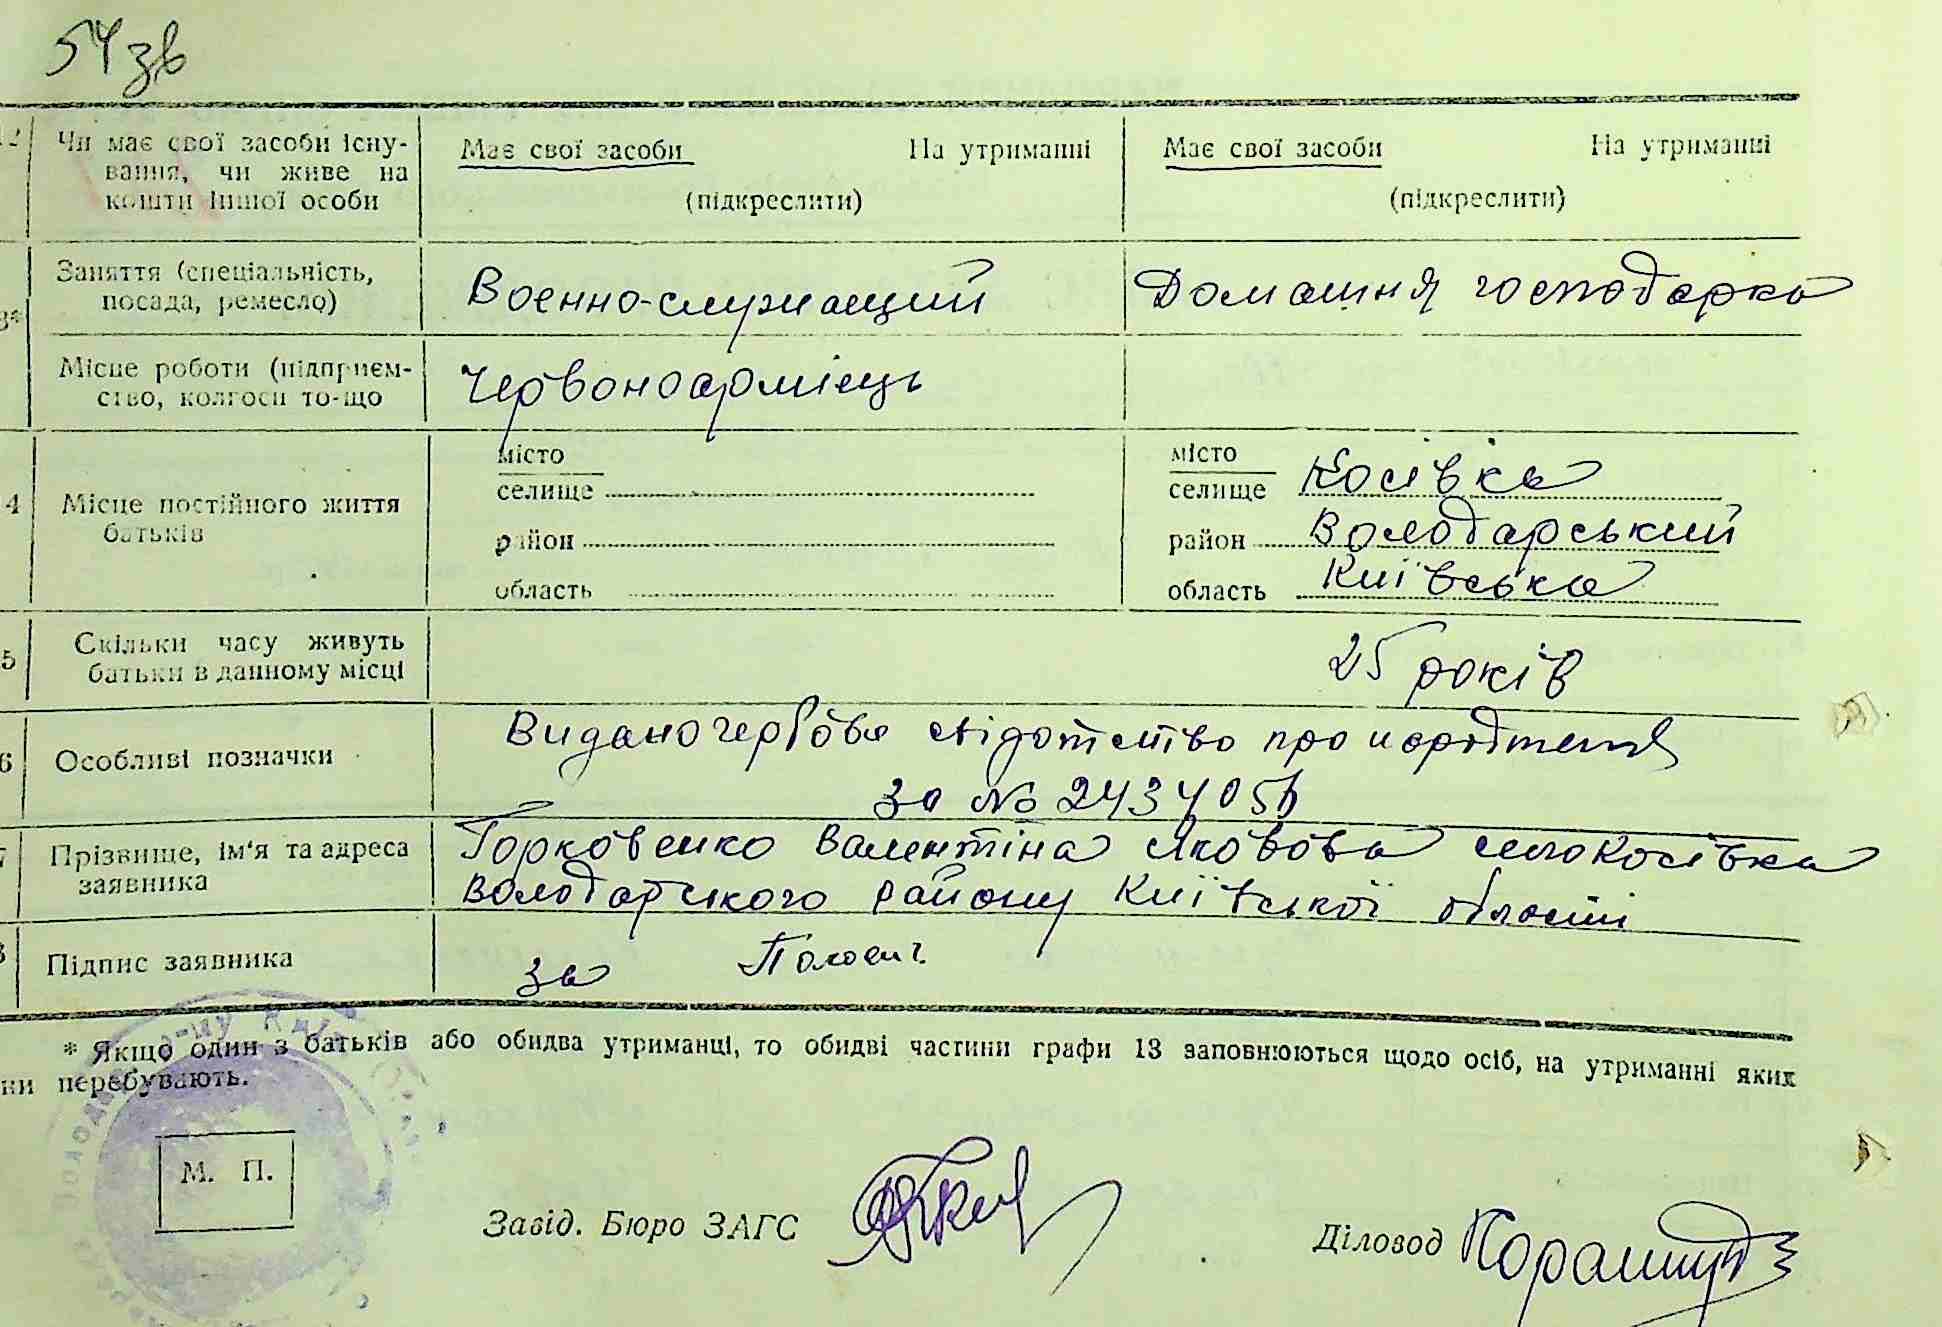 54 зв
12 Чи має свої засоби існу- Має свої засоби На утриманні Має свої засоби На утриманні
вання, чи живе на
кошти іншої особи (підкреслити) (підкреслити)
Заняття (спеціальність,
посада, ремесло) Военно-служащий Домашня господарка
3*
Місце роботи (підприєм- Червоноармієць
ство, колгосп то-що
місто місто
селище селище Косівка
4 Місце постійного життя район район Володарський
батьків
область область Київська
5 Скільки часу живуть 25 років
батьки в данному місці
6 Особливі позначки Видано гербове свідотство про народження
за №
7 Прізвище, ім'я та адреса Горковенко Валентіна Яковова село Косівка
заявника Володарського району Київської області
8 Підпис заявника за
* Якщо один з батьків або обидва утриманці, то обидві частини графи 13 заповнюються щодо осіб, на утриманні яких
ни перебувають.
М. П.
Завід. Бюро ЗАГС
Діловод